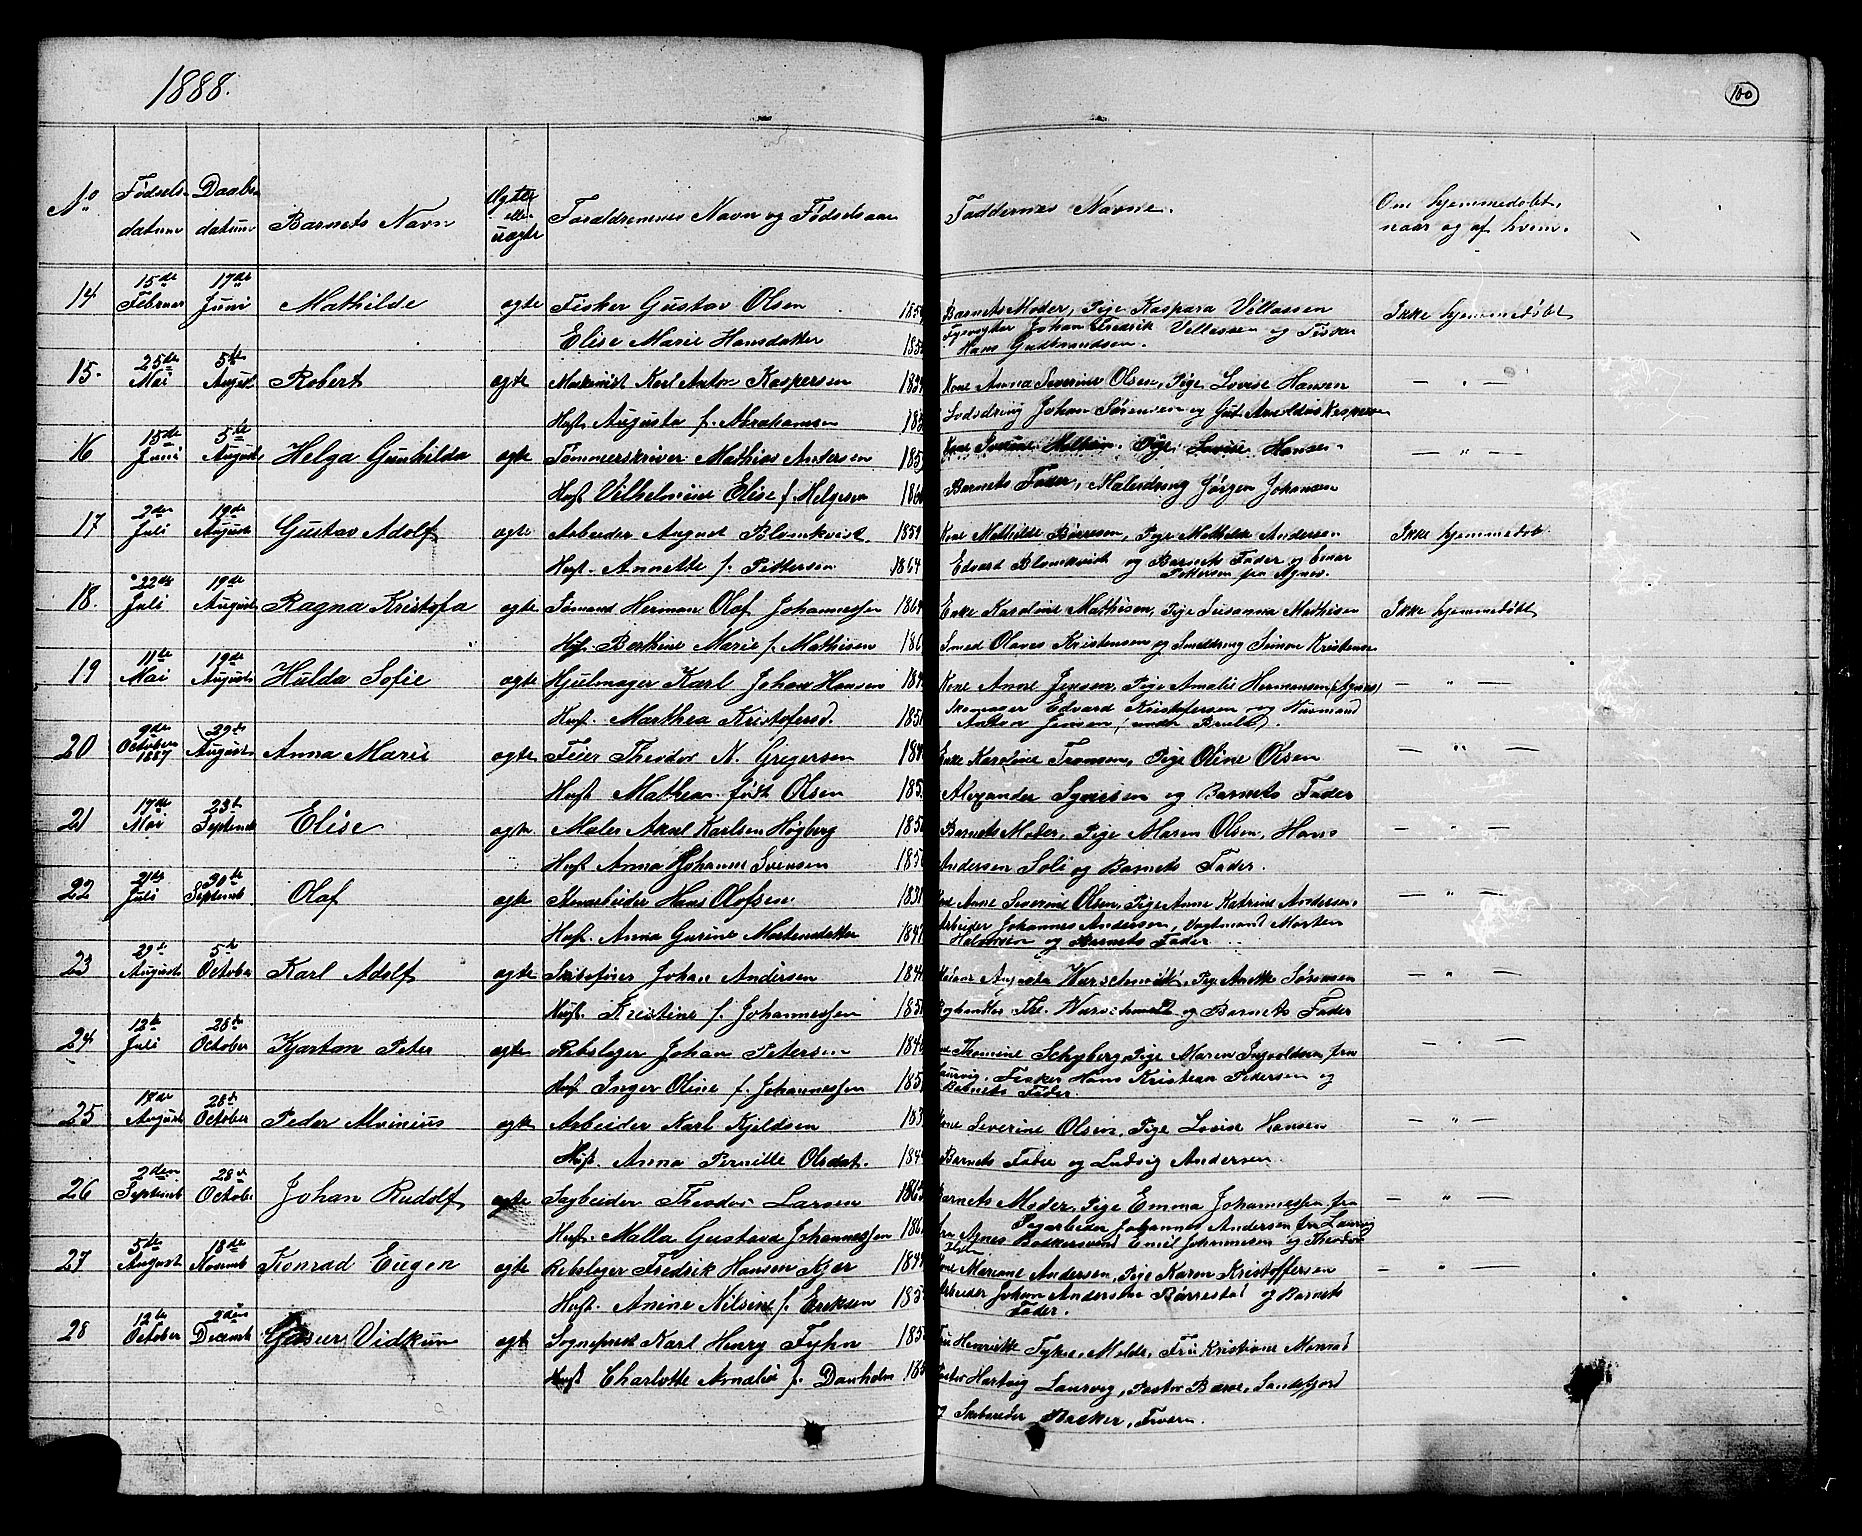 1888.
100
No Fødsels- Daabs- Barnets Navn Ægte Forældrenes Navn og Fødselsaar Faddernes Navne. Om hjemmedøbt,
datum datum eller uægte naar og af hvem.
14 15de Februar 17de Juni Mathilde ægte Fisker Gustav Olsen Barnets Moder, Pige Kaspara Villassen Ikke hjemmedøbt
Elise Marie Hansdatter Johan Fredrik Villassen og Fisker
Hans Gudbrandsen.
15. 25de Mai 5te August Robert ægte Maskinist Karl Anton Kaspersen Kone Anna Severine Olsen, Pige Lovise Hansen — " —
Hust. Augusta f. Abrahamsen Johan Sørensen og Gut. Arnoldus Kaspersen
16 15de Juni 5te August Helga Gunhilda ægte Tømmerskriver Mathias Andersen Kone Pige Lovise Hansen — " —
Hust Vilhelmine Elise f. Helgesen Barnets Fader, Malerdreng Jørgen Johansen
17 2den Juli 19de August Gustav Adolf ægte Arbeider August Blomkvist 1859 Kone Mathilde Børresen, Pige Mathilde Andersen Ikke hjemmedøbt
Hust. Annette f. Pettersen 1864 Edvard Blomkvist og Barnets Fader og Einar
Pettersen fra Agnes.
18. 22de Juli 19de August Ragna Kristofa ægte Sømand Herman Olaf Johannessen 1864 Enke Karoline Mathisen, Pige Susanna Mathisen Ikke hjemmedøbt
Hust. Berthine Marie f. Mathisen Smed Olaves Kristensen og Smeddreng Simon Kristensen
19 11te Mai 19de August Hulda Sofie ægte Hjulmager Karl Johan Hansen Kone Anne Jensen, Pige Amalie Hermansen (Agnes) — " —
Hust. Marthea Kristofersd. 1851 Skomager Edvard Kristofersen og
Anton Jensen
20 9de October 1887 29de August Anna Marie ægte Feier Theodor N. Gregersen Enke Karoline Fransen, Pige Oline Olsen — " —
Hust Mathea født Olsen Alexander Syversen og Barnets Fader
21 17de Mai 23de Septemb Elise ægte Maler Axel Karlsen Høgberg Barnets Moder, Pige Maren Olsen, Hans — " —
Hust Anna Johanne Svensen Andersen Soli og Barnets Fader.
22 21de Juli 30te Septemb Olaf ægte Stenarbeider Hans Olofsen 1831 Kone Anne Severine Olsen, Pige Anne Katrine Andersen, — " —
Hust. Anna Gurine Mortensdatter 1847 Arbeider Johannes Andersen, Vagtmand Morten
Halvorsen og Barnets Fader
23 29de August 5te October Karl Adolf ægte Skibsfører Johan Andersen Augusta Warschmidt, Pige Anette Sørensen — " —
Hust. Kristine f. Johannessen Boghandler Thr. Warschmidt og Barnets Fader
24 13de Juli 28de October Kjartan Peter ægte Rebslager Johan Petersen Thomine Schyberg, Pige Maren Ingvoldsen, fra — " —
Hust. Inger Oline f. Johannessen Laurvig, Fisker Hans Kristian Pedersen og
Barnets Fader.
25 18de August 28de October Peder Alvinius ægte Arbeider Karl Kjeldsen Kone Severine Olsen, Pige Lovise Hansen — " —
Hust. Anna Pernille Olsdat. Barnets Fader og Ludvig Andersen.
26 2den Septemb 28de October Johan Rudolf ægte Sagbeider Theodor Larsen 1865 Barnets Moder, Pige Emma Johannessen fra — " —
Hust. Malla Gustava Johannessen Johannes Andersen fra Laurvig
fra Agnes Emil Johannesen og Theodor
27 5te August 18de Novemb Konrad Eugen ægte Rebslager Fredrik Hansen Kjær Kone Mariane Andersen, Pige Karen Kristoffersen — " —
Hust. Anine Nilsine f. Eriksen Arbeider Johan Andersen Børrestad og Barnets
Fader.
28 12te October 2den Decemb Vidkun ægte Sogneprest Karl Henry Fyhn Fru Henrikke Molde, Fru Kristiane Monrad
Hust Charlotte Amalie f. Danholm Pastor Hartvig Laurvig, Pastor Sandefjord
og Skibsreder Backer,